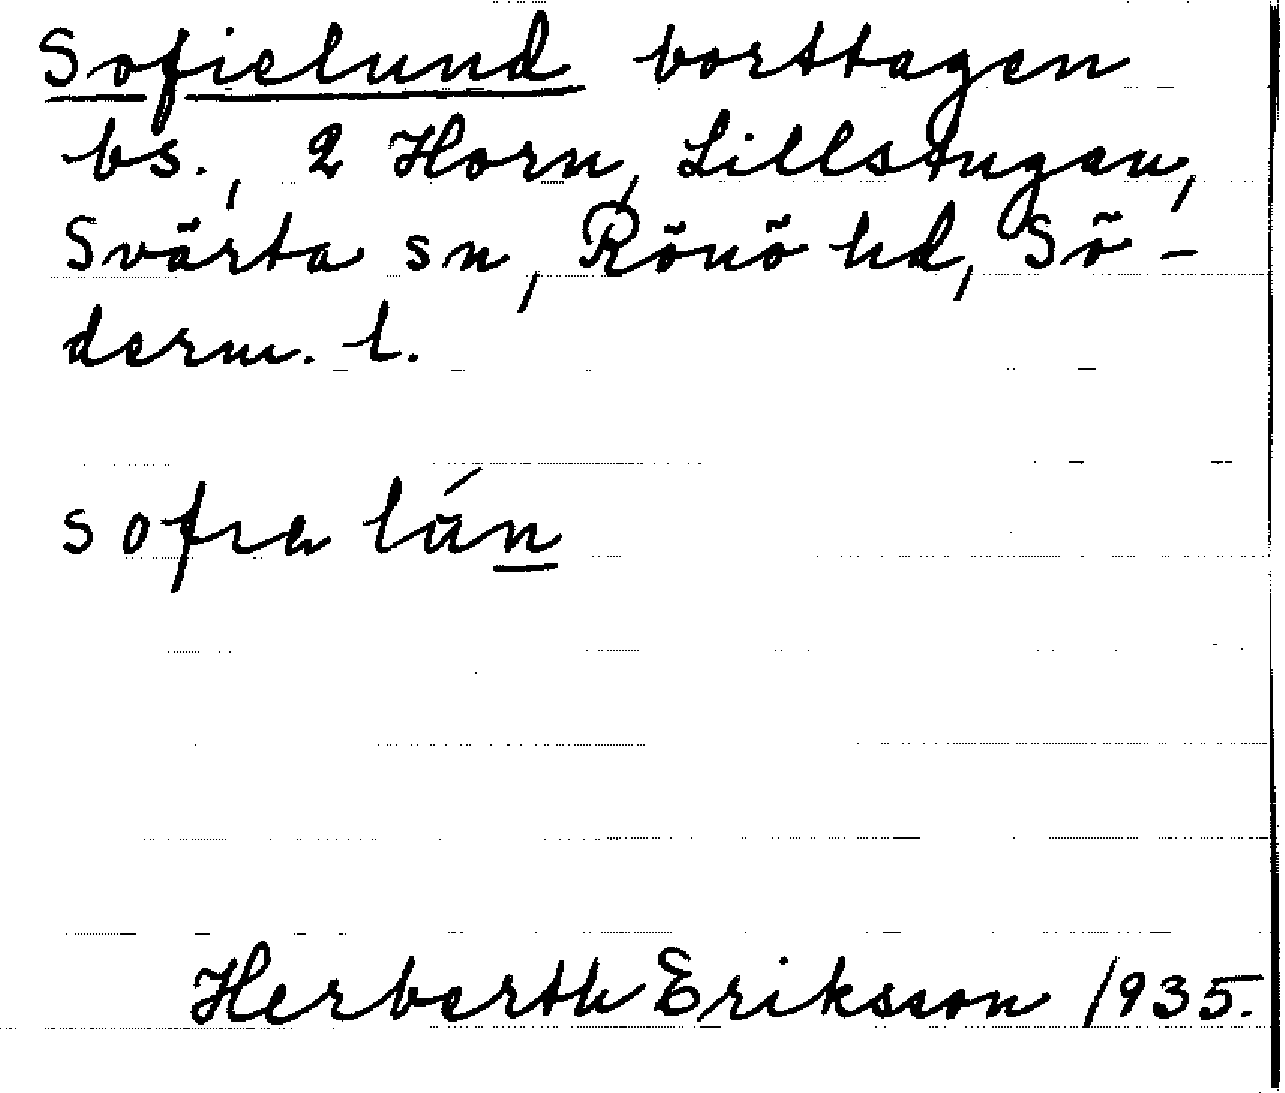 Sofielund borttagen
bs., 2 Horn, Lillstugan,
Svärta sn, Rönö hd, Sö-
derm. l.
sofia lún
Herberth Eriksson 1935.